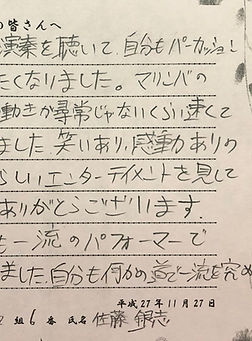 の皆さんへ
演奏を聴いて、自分もパーカッショ
たくなりました。マリンバの
動きが尋常じゃないくらい速くて
ました笑いあり、感動ありの
らしいエンターテイメントを見して
ありがとうございます.
も一流のパフォーマーで
ました、自分も何かの道で一流を究め
平成27年11月27日
組6番 氏名 佐藤 銀志